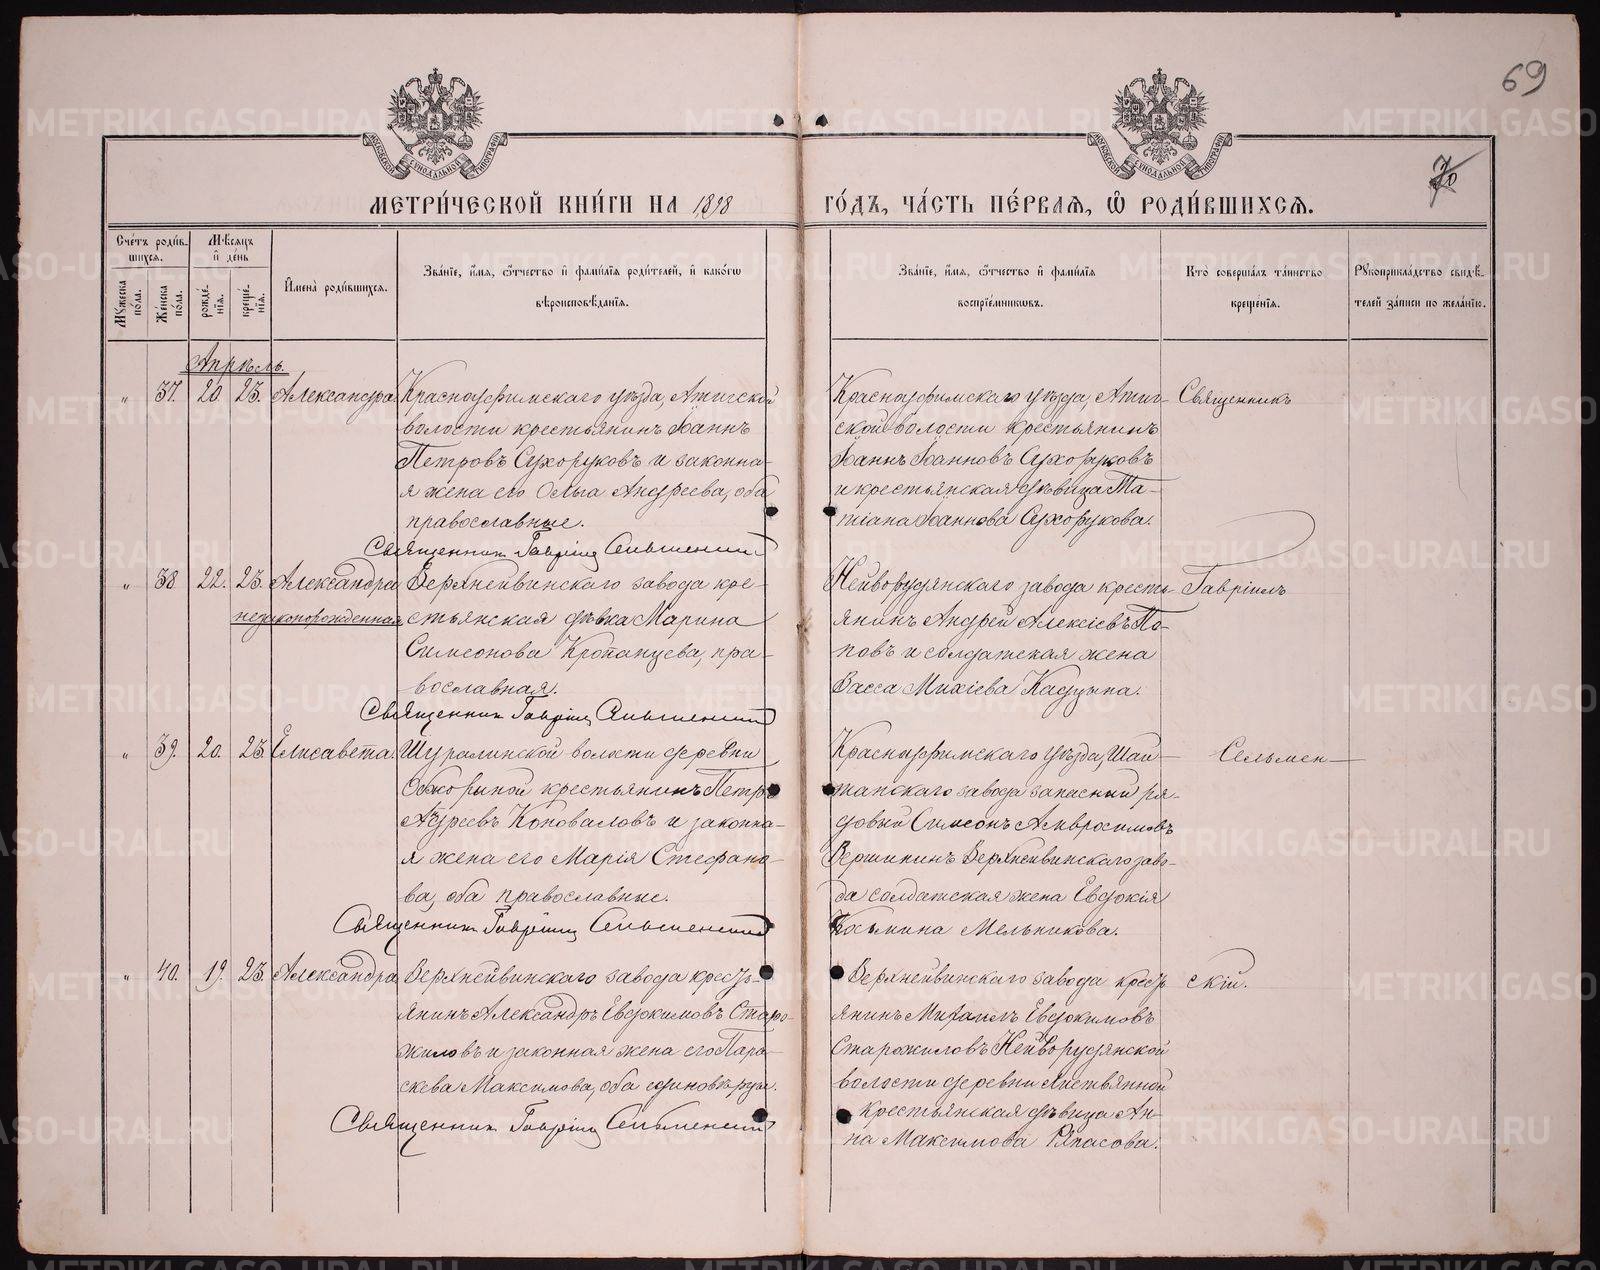 69
70
МОСКОВСКОЙ СѴНОДАЛЬНОЙ ТИПОГРАФІИ
МОСКОВСКОЙ СѴНОДАЛЬНОЙ ТИПОГРАФІИ
МЕТРИ́ЧЕСКОЙ КНИ́ГИ НА 1898
ГО́ДЪ, ЧА́СТЬ ПЕ́РВАѦ, Ѽ РОДИ́ВШИХСѦ.
Сче́тъ роди́в-
шихся.
Мѣ́сяцъ
и҆ де́нь
Мꙋ́жеска
по́ла.
Же́нска
по́ла.
рожде́-
нїя.
креще́-
нїя.
И҆мена̀ роди́вшихся.
Зва́нїе, и҆́мя, ѻ҆́тчество и҆ фами́лїя роди́телей, и҆ како́гѡ
вѣроисповѣ́данїя.
Зва́нїе, и҆́мя, ѻ҆́тчество и҆ фами́лїя
воспрїе́мникѡвъ.
Кто̀ соверша́лъ та́инство
креще́нїя.
Рꙋкоприкла́дство свидѣ́-
телей за́писи по жела́нїю.
Апрѣль.
" 37. 20. 23. Александра
Красноуфимскаго уѣзда, Атигской
волости крестьянинъ Іоаннъ
Петровъ Сухоруковъ и законна-
я жена его Ольга Андреева, оба
православные.
Священник Гавріил Сельменский
Красноуфимскаго уѣзда, Атиг-
ской волости крестьянинъ
Іоаннъ Іоанновъ Сухоруковъ
и крестьянская дѣвица Та-
тіана Іоаннова Сухорукова.
Священникъ
" 38 22. 23. Александра
незаконорожденная
Верхнейвинскаго завода кре-
стьянская дѣвка Марина
Симеонова Кропанцева, пра-
вославная.
Священник Гавріил Сельменский
Нейворудянскаго завода кресть-
янинъ Андрей Алексіевъ По-
повъ и солдатская жена
Васса Михіева Кадцына.
Гавріилъ
" 39. 20. 23. Елисавета
Шуралинской волости деревни
Обжориной крестьянинъ Петръ
Коноваловъ и законна-
я жена его Марія Стефано-
ва, оба православные.
Священник Гавріил Сельменский
Красноуфимскаго уѣзда, Шай-
танскаго завода запасный ря-
довый Симеонъ Амвросимовъ
Вершининъ Верхнейвинскаго заво-
да солдатская жена Евдокія
Косьмина Мельникова.
Сельмен-
" 40. 19. 23. Александра
Верхнейвинскаго завода кресть-
янинъ Александръ Евдокимовъ Старо-
жиловъ и законная жена его Пара-
скева Максимова, оба единовѣрцы.
Священник Гавріил Сельменский
Верхнейвинскаго завода кресть-
янинъ Михаилъ Евдокимовъ
Старожиловъ Нейворудянской
волости деревни Листвянной
крестьянская дѣвица Ан-
на Максимова Ряпасова.
скій.
METRIKI.GASO-URAL.RU